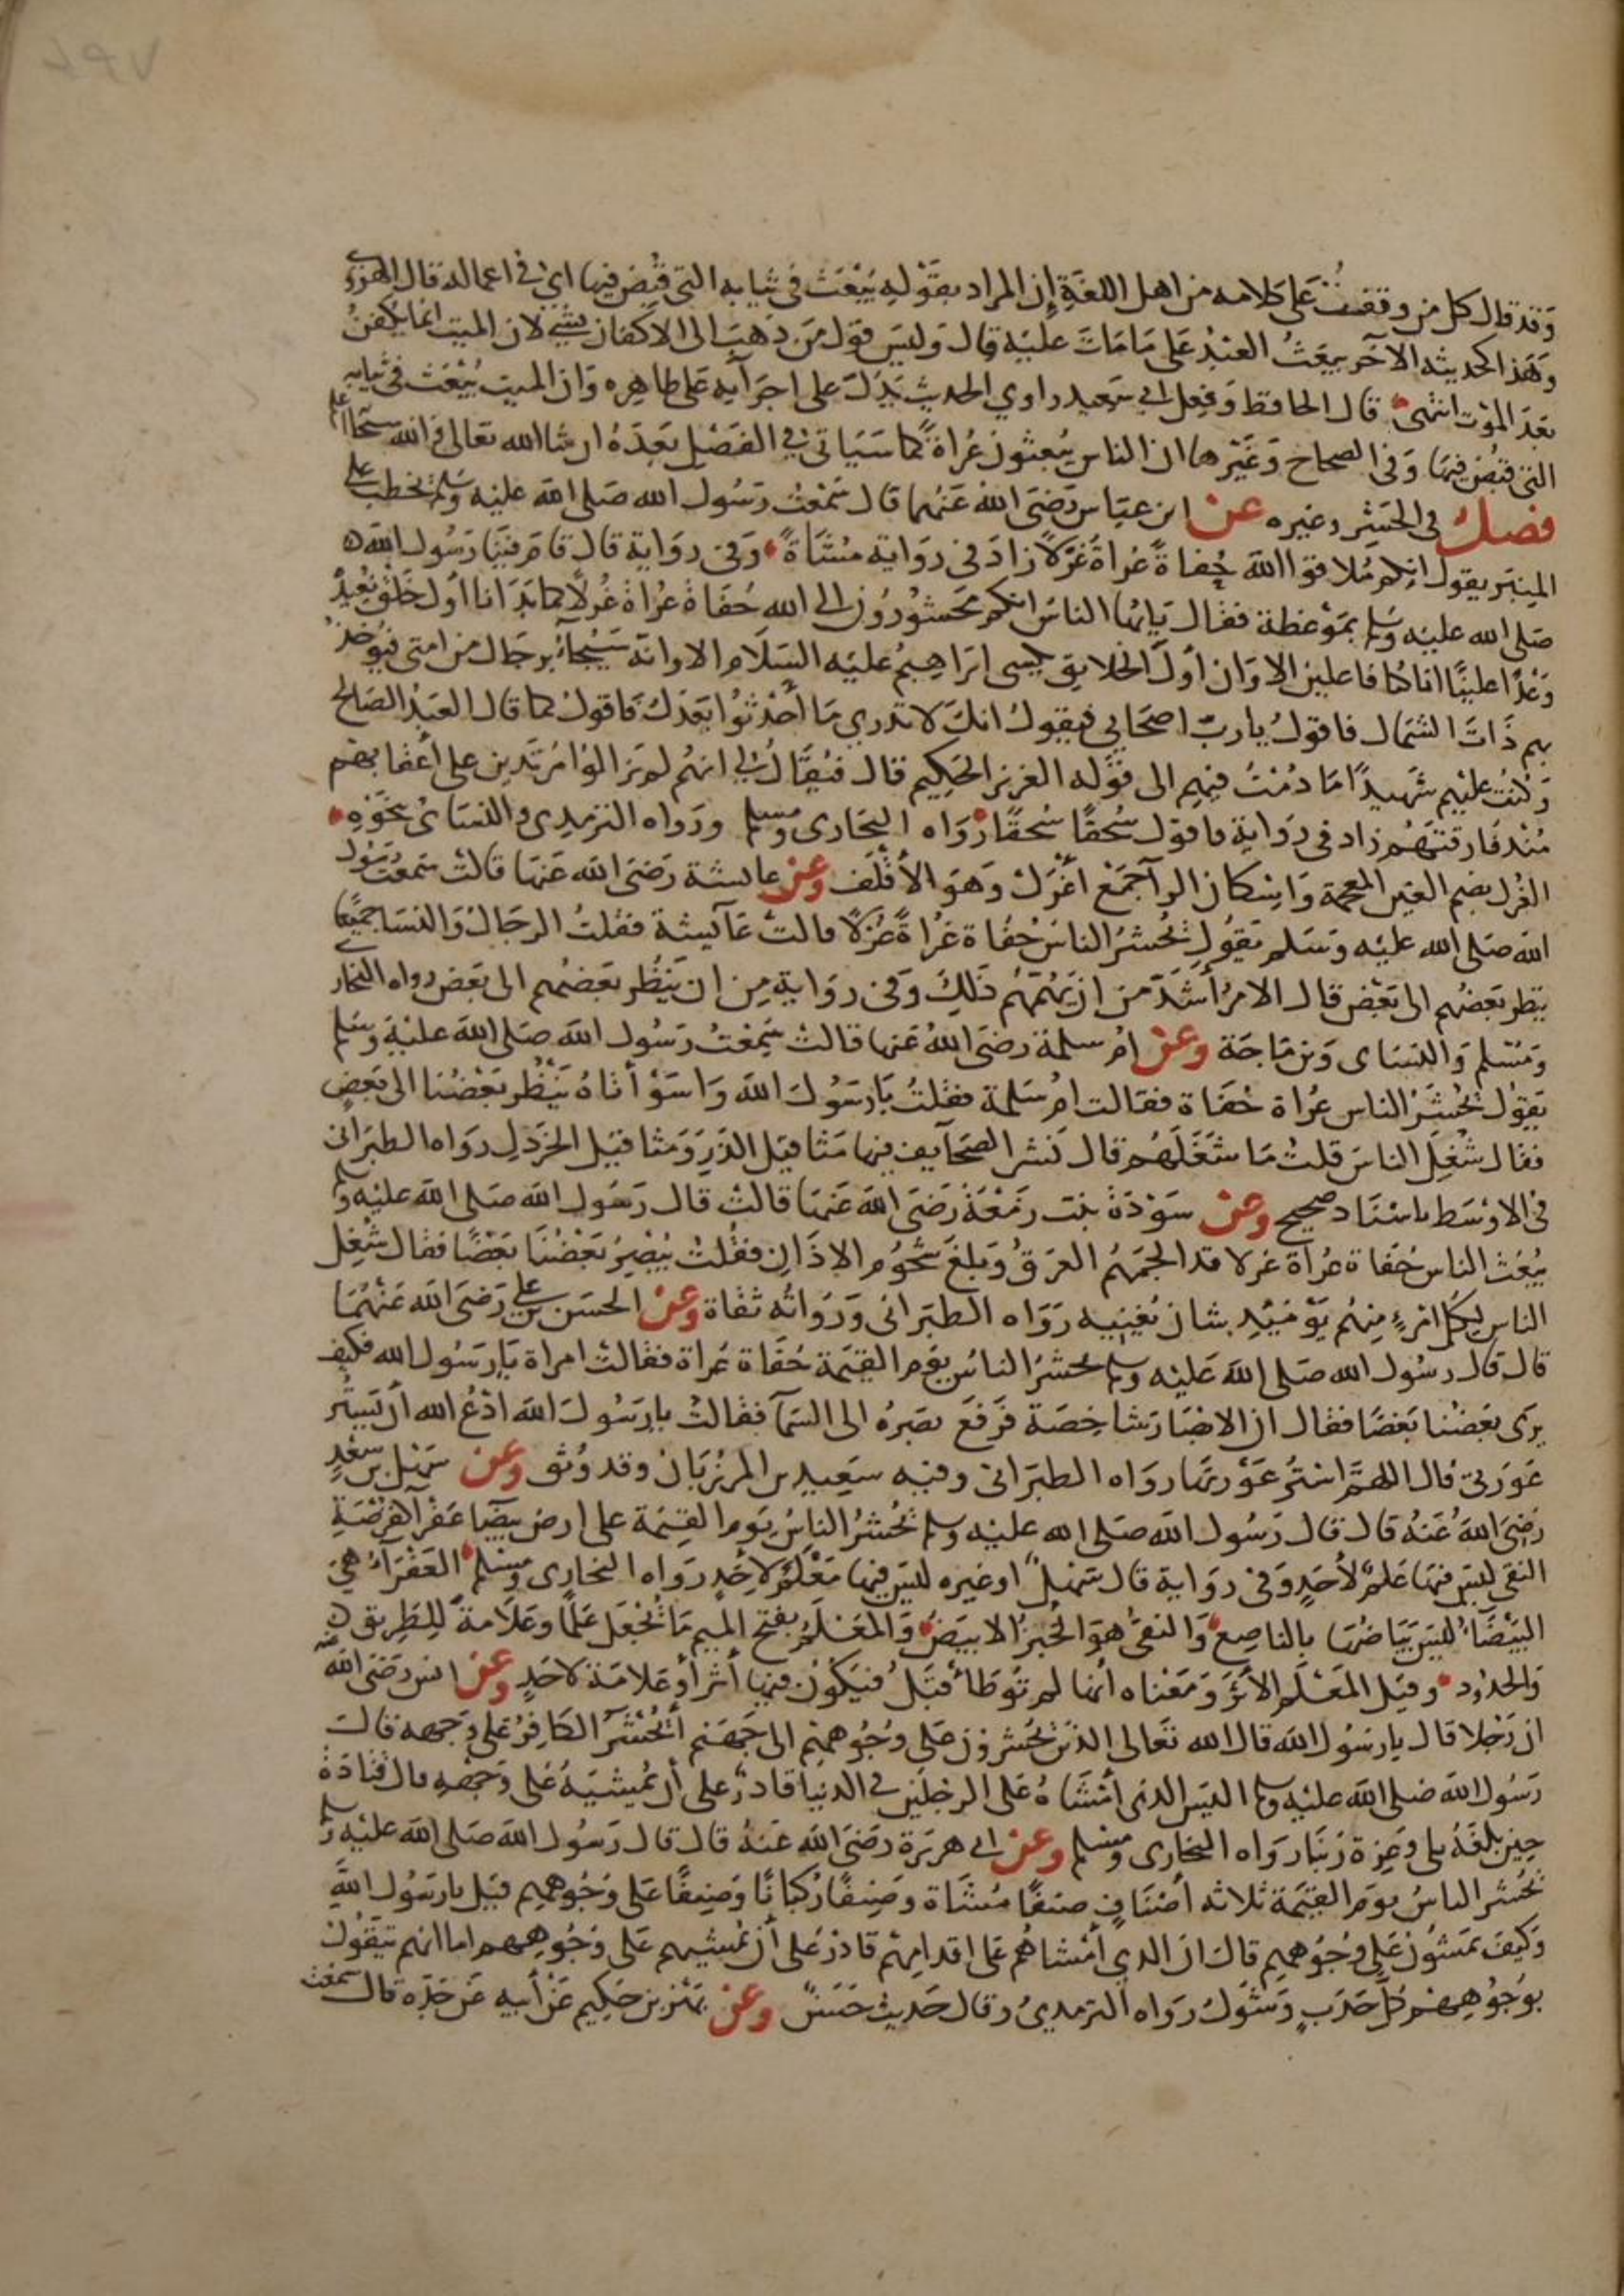 وقد قال كل من وقفت على كلامه من اهل اللغة إن المراد بقوله يبعث في ثيابه التي قبض فيها اي في اعماله قال الهروي
وهذا كحديثه الآخر يبعث العبد على ما مات عليه قال وليس قول من ذهب الى الاكفان بشي لان الميت انما يكفن
بعد الموت انتهى قال الحافظ وفعل ابي سعيد راوي الحديث يدل على اجرآيه على ظاهره وان الميت يبعث في ثيابه
التي قبض فيها وفي الصحاح وغيرها ان الناس يبعثون عراة كما سياتي في الفصل بعده ان شا الله تعالى فالله سبحانه اعلم
فصل في الحشر وغيره عن ابن عباس رضي الله عنهما قال سمعت رسول الله صلى الله عليه وسلم يخطب على
المنبر يقول انكم ملاقوا الله حفاة عراة غرلا زاد في رواية مشاة وفي رواية قال قام فينا رسول الله
صلى الله عليه وسلم بموعظة فقال يايها الناس انكم محشورون الى الله حفاة عراة غرلا كما بدانا اول خلق نعيده
وعدا علينا انا كنا فاعلين الا وان اول الخلايق يكسى ابراهيم عليه السلام الا وانه سيجآء برجال من امتي فيوخذ
بهم ذات الشمال فاقول يارب اصحابي فيقول انك لا تدري ما احدثوا بعدك فاقول كما قال العبد الصالح
وكنت عليهم شهيدا ما دمت فيهم الى قوله العزيز الحكيم قال فيقال لي انهم لم يزالوا مرتدين على أعقابهم
منذ فارقتهم زاد في رواية فاقول سحقا سحقا رواه البخاري ومسلم ورواه الترمذي والنساى بنحوه
الغرل بضم الغين المعجمة واسكان الرآ جمع اغرل وهو الأقلف وعن عايشة رضي الله عنها قالت سمعت رسول
الله صلى الله عليه وسلم يقول يحشر الناس حفاة عراة غرلا قالت عآيشة فقلت الرجال والنسا جميعا
ينظر بعضهم الى بعض قال الامر أشد من ان يهمهم ذلك وفي رواية من ان ينظر بعضهم الى بعض رواه البخاري
ومسلم والنساى وبن ماجة وعن ام سلمة رضي الله عنها قالت سمعت رسول الله صلى الله عليه وسلم
يقول يحشر الناس عراة حفاة فقالت ام سلمة فقلت يا رسول الله وا سوأتاه ينظر بعضنا الى بعض
فقال شغل الناس قلت ما شغلهم قال نشر الصحآيف فيها مثاقيل الذر ومثاقيل الخردل رواه الطبراني
في الاوسط باسناد صحيح وعن سودة بنت زمعة رضي الله عنها قالت قال رسول الله صلى الله عليه وسلم
يبعث الناس حفاة عراة غرلا قد الجمهم العرق وبلغ شحوم الاذان فقلت يبصر بعضنا بعضا فقال شغل
الناس لكل امرء منهم يومئيذ شان يغنيه رواه الطبراني ورواته ثقاة وعن الحسن بن علي رضي الله عنهما
قال قال رسول الله صلى الله عليه وسلم يحشر الناس يوم القيمة حفاة عراة فقالت امراة يا رسول الله فكيف
يرى بعضنا بعضا فقال ان الابصار شاخصة فرفع بصره الى السمآ فقالت يا رسول الله ادع الله أن يستر
عورتي قال اللهم استر عورتها رواه الطبراني وفيه سعيد بن المرزبان وقد وثق وعن سهل بن سعد
رضي الله عنه قال قال رسول الله صلى الله عليه وسلم يحشر الناس يوم القيمة على ارض بيضا عفرآ كقرصة
النقى ليس فيها علم لأحد وفي رواية قال سهل او غيره ليس فيها معلم لاحد رواه البخاري ومسلم العفرآء هي
البيضآء ليس بياضها بالناصع والنقى هو الخبز الابيض والمعلم بفتح الميم ما يجعل علما وعلامة للطريق
والحدود وقيل المعلم الاثر ومعناه أنها لم توطأ قبل فيكون فيها أثر أو علامة لاحد وعن انس رضي الله عنه
ان رجلا قال يا رسول الله قال الله تعالى الذين يحشرون على وجوههم الى جهنم أيحشر الكافر على وجهه قال
رسول الله صلى الله عليه وسلم اليس الذي أمشاه على الرجلين في الدنيا قادر على أن يمشيه على وجهه قال قتادة
حين بلغه بلى وعزة ربنا رواه البخاري ومسلم وعن ابي هريرة رضي الله عنه قال قال رسول الله صلى الله عليه وسلم
يحشر الناس يوم القيمة ثلاثه أصناف صنفا مشاة وصنفا ركبانا وصنفا على وجوههم قيل يا رسول الله
وكيف يمشون على وجوههم قال ان الذي أمشاهم على اقدامهم قادر على أن يمشيهم على وجوههم اما انهم يتقون
بوجوههم كل حدب وشوك رواه الترمذي وقال حديث حسن وعن بهز بن حكيم عن أبيه عن جده قال سمعت